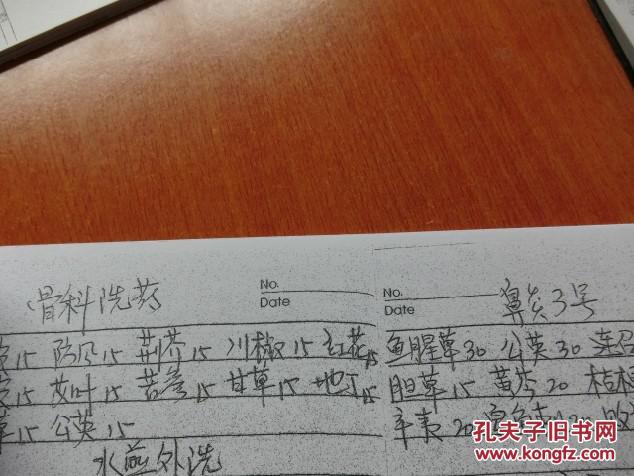 骨科洗药
No.
Date
15 防风15 荆芥15 川椒15 红花15
15 艾叶15 苦参15 甘草15 地丁15
15 公英15
水煎外洗
No.
Date
鼻炎3号
鱼腥草30 公英30 连召
胆草15 黄芩20 桔梗
辛夷20
孔夫子旧书网
www.kongfz.com